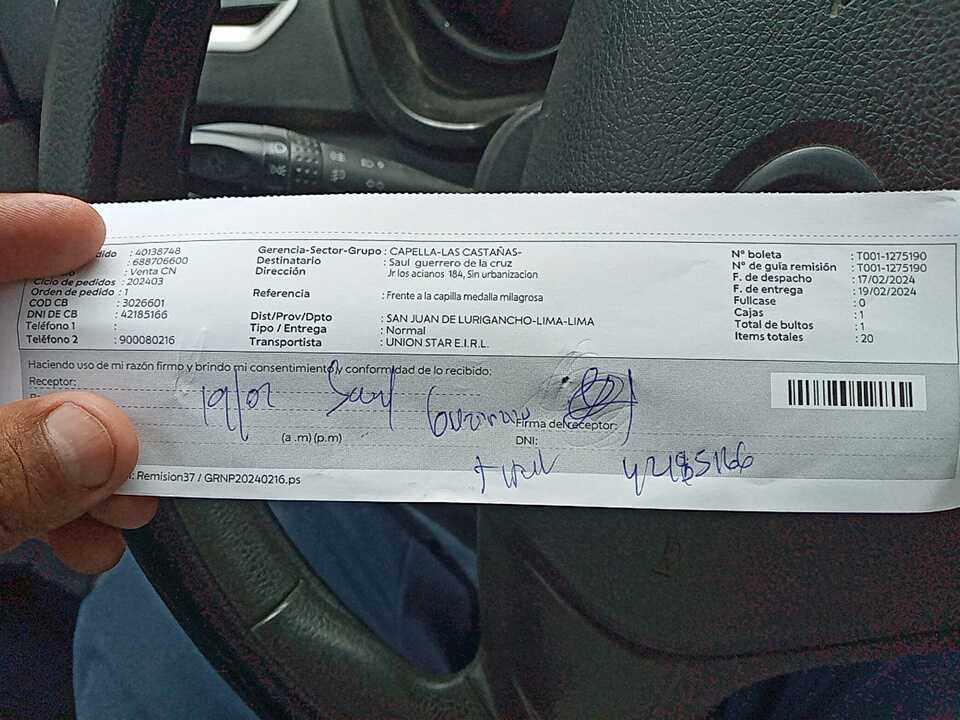 dido : 40138748
: 688706600
: Venta CN
Ciclo de pedidos : 202403
Orden de pedido : 1
COD CB : 3026601
DNI DE CB : 42185166
Teléfono 1 :
Teléfono 2 : 900080216
Gerencia-Sector-Grupo : CAPELLA-LAS CASTAÑAS-
Destinatario : Saul guerrero de la cruz
Dirección : Jr los acianos 184, Sin urbanizacion
Referencia : Frente a la capilla medalla milagrosa
Dist/Prov/Dpto : SAN JUAN DE LURIGANCHO-LIMA-LIMA
Tipo / Entrega : Normal
Transportista : UNION STAR E.I.R.L.
N° boleta : T001-1275190
N° de guía remisión : T001-1275190
F. de despacho : 17/02/2024
F. de entrega : 19/02/2024
Fullcase : 0
Cajas : 1
Total de bultos : 1
Items totales : 20
Haciendo uso de mi razón firmo y brindo mi consentimiento y conformidad de lo recibido:
Receptor:
19/02 Saul Guerrero
(a .m) (p.m)
Firma del receptor:
DNI:
42185166
: Remision37 / GRNP20240216.ps